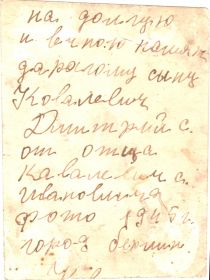 на долгую
и вечною памят
дарагому сыну
Ковалевич
Дмитрий с.
от отца
Кавалевич с.
Ивановича
фото 1945 г.
город берлин.